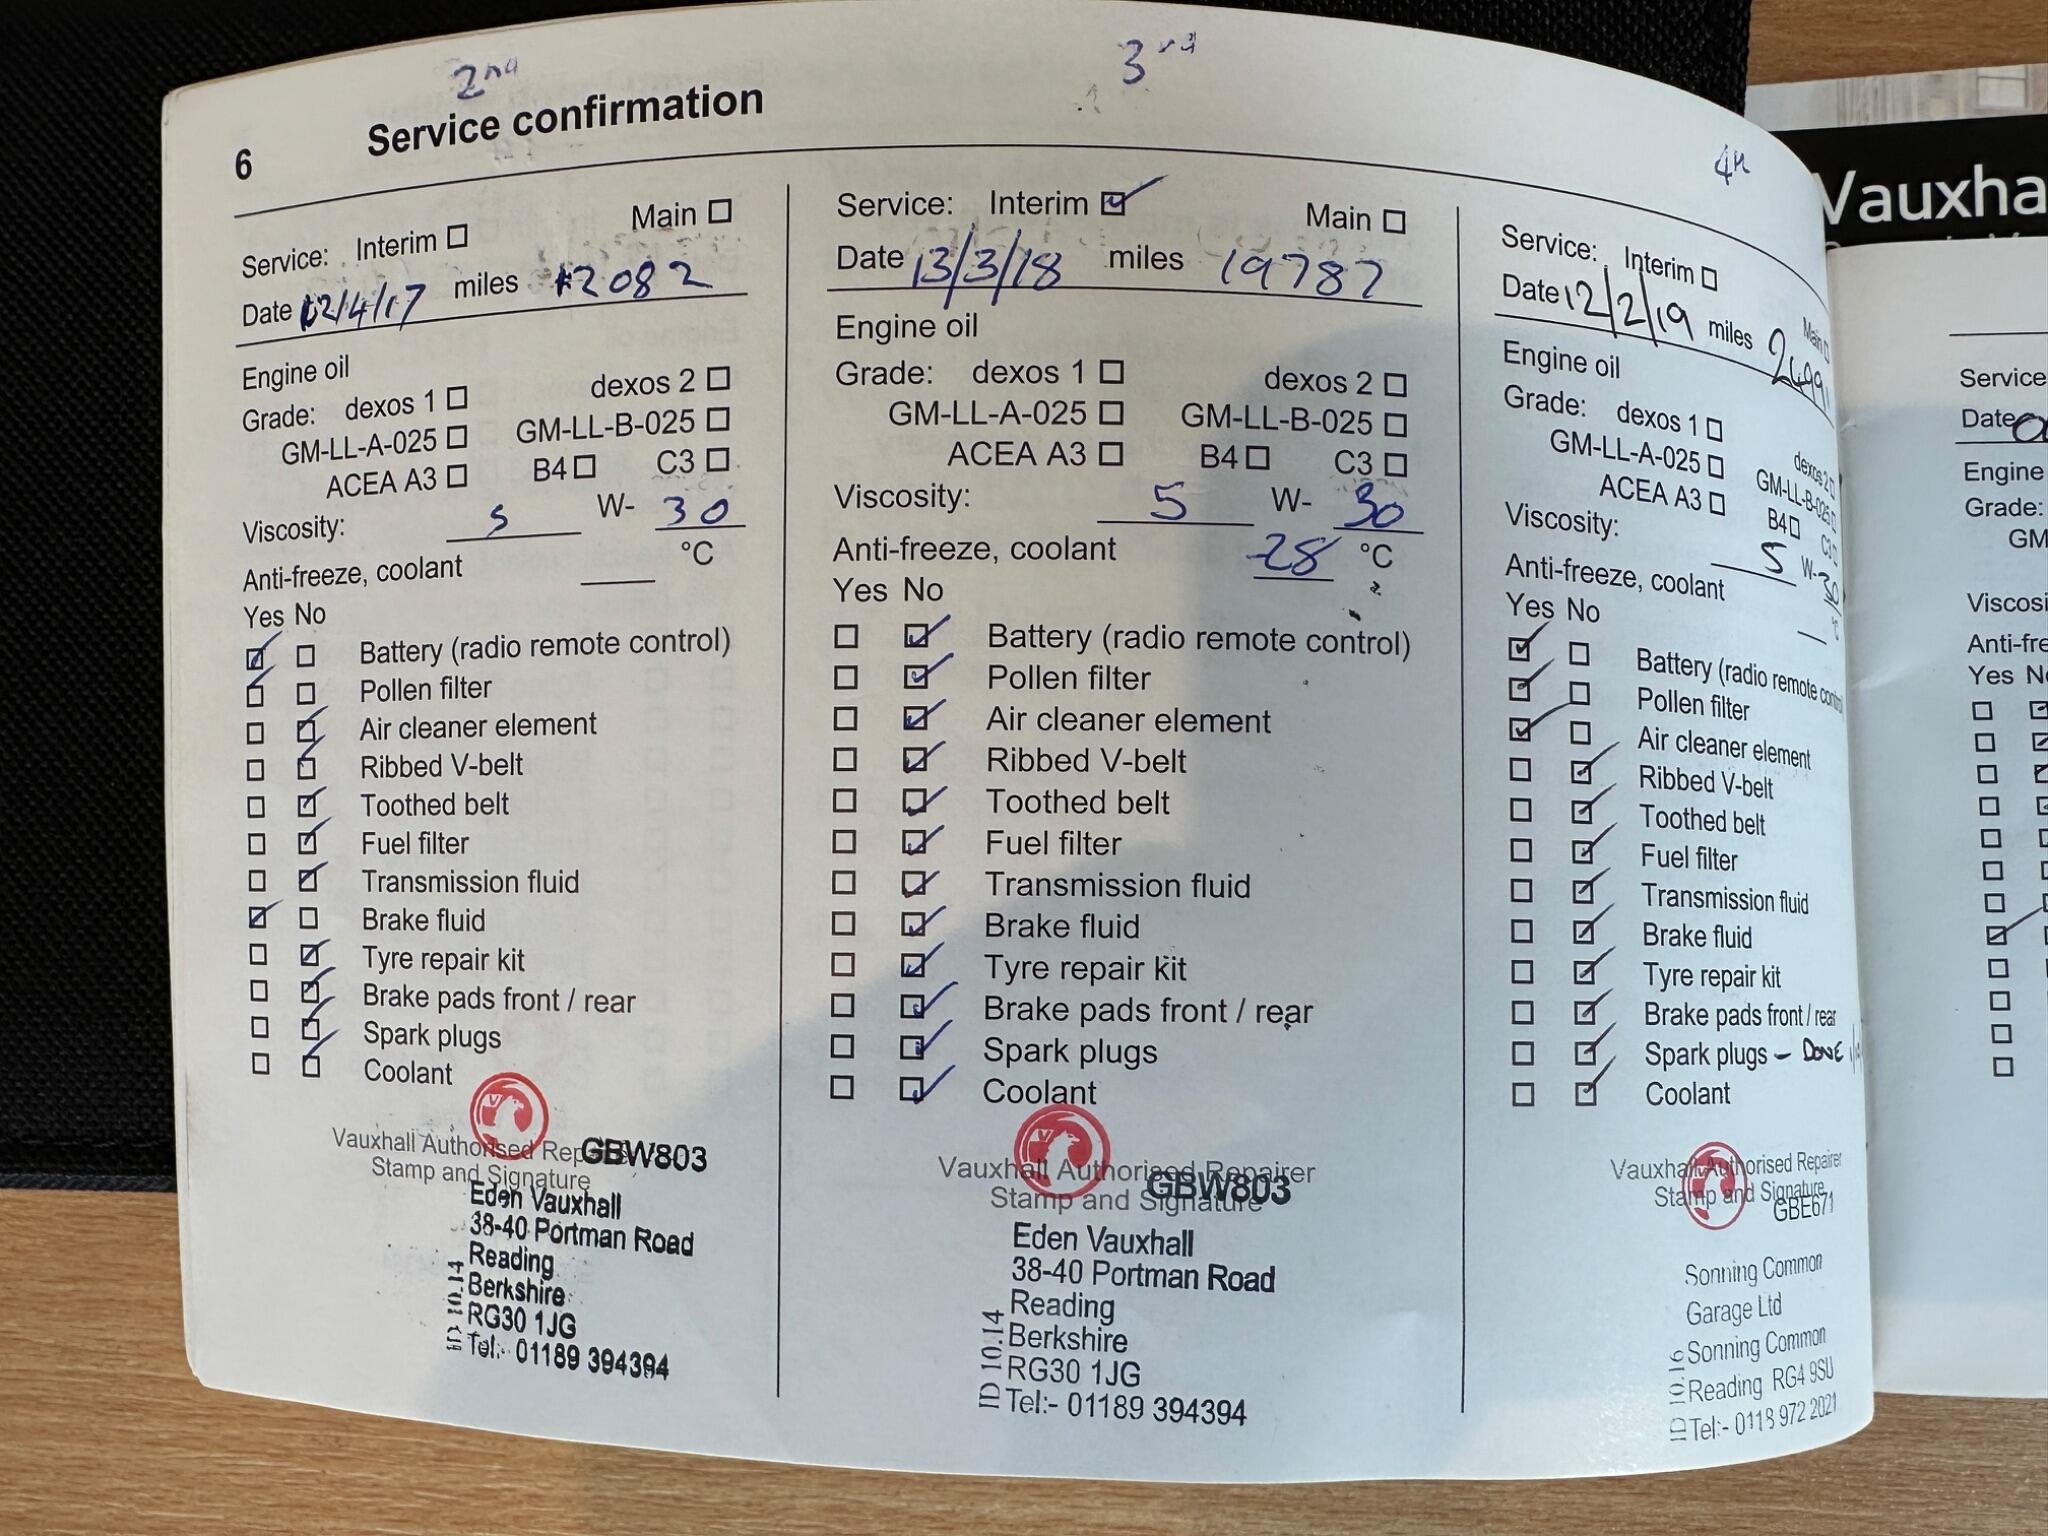 2nd
3rd
4th
6 Service confirmation
Service: Interim Main
Date 12/4/17 miles 12082
Engine oil
Grade: dexos 1 dexos 2
GM-LL-A-025 GM-LL-B-025
ACEA A3 B4 C3
Viscosity: 5 W- 30
Anti-freeze, coolant °C
Yes No
Battery (radio remote control)
Pollen filter
Air cleaner element
Ribbed V-belt
Toothed belt
Fuel filter
Transmission fluid
Brake fluid
Tyre repair kit
Brake pads front / rear
Spark plugs
Coolant
Vauxhall Authorised Repairer
Stamp and Signature
GBW803
Eden Vauxhall
38-40 Portman Road
Reading
Berkshire
RG30 1JG
Tel:- 01189 394394
Service: Interim Main
Date 13/3/18 miles 19787
Engine oil
Grade: dexos 1 dexos 2
GM-LL-A-025 GM-LL-B-025
ACEA A3 B4 C3
Viscosity: 5 W- 30
Anti-freeze, coolant -28 °C
Yes No
Battery (radio remote control)
Pollen filter
Air cleaner element
Ribbed V-belt
Toothed belt
Fuel filter
Transmission fluid
Brake fluid
Tyre repair kit
Brake pads front / rear
Spark plugs
Coolant
Vauxhall Authorised Repairer
Stamp and Signature
GBW803
Eden Vauxhall
38-40 Portman Road
Reading
Berkshire
RG30 1JG
Tel:- 01189 394394
ID 10.14
Service: Interim Main
Date 12/2/19 miles
Engine oil
Grade: dexos 1 dexos 2
GM-LL-A-025 GM-LL-B-025
ACEA A3 B4 C3
Viscosity: 5 W- 30
Anti-freeze, coolant °C
Yes No
Battery (radio remote
Pollen filter
Air cleaner element
Ribbed V-belt
Toothed belt
Fuel filter
Transmission fluid
Brake fluid
Tyre repair kit
Brake pads front / rear
Spark plugs - DONE
Coolant
Vauxhall Authorised Repairer
Stamp and Signature
GBE671
Sonning Common
Garage Ltd
Sonning Common
Reading RG4 9SU
Tel:- 0118 972 2021
ID 10.16
Vauxha
Service
Date
Engine
Grade:
GM
Viscosi
Anti-fre
Yes No